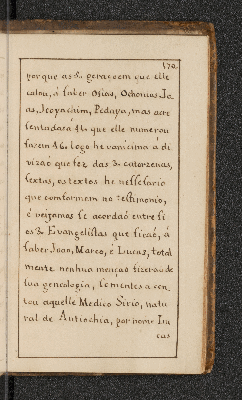 170
porque as 5. geraçoem que elle
calou, á saber Osias, Ochonias Jo
as, Jeoyachim, Pedaya, mas acre
sentados á 41. que elle numerou
fazem 46. logo he vaníssima a di
vizaó que fez das 3. catorzenas,
sextas, os textos he nessesario
que comformem no testimonio,
é vejamos se acordaó entre si
os 3. Evangelistas que ficaó, á
saber Joan, Marco, é Lucas, total
mente nenhua mençaó fizeraó de
sua geneologia, somentes a con-
tou aquelle Medico Sirio, natu
ral de Antiochia, por nome Lu
cas